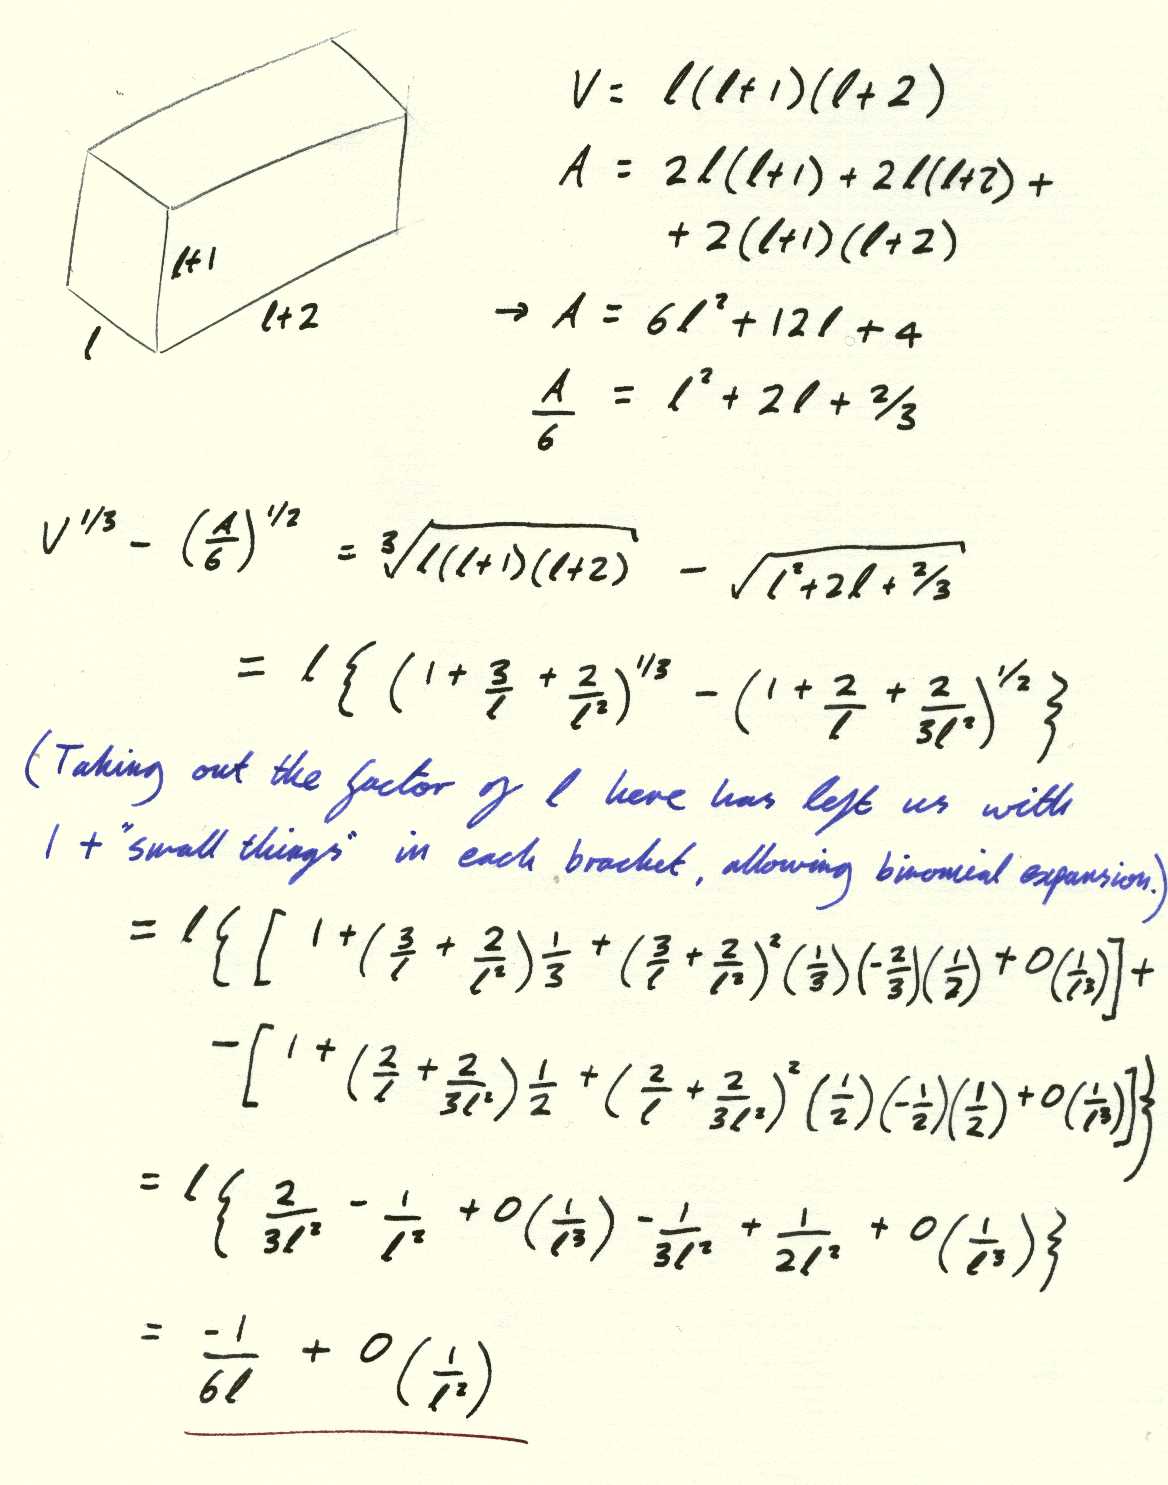 V = l(l+1)(l+2)
A = 2l(l+1) + 2l(l+2) +
+ 2(l+1)(l+2)
l+1
l+2
l
→ A = 6l² + 12l + 4
A/6 = l² + 2l + 2/3
V^1/3 - (A/6)^1/2 = ∛(l(l+1)(l+2)) - √(l²+2l+2/3)
= l { (1 + 3/l + 2/l²)^1/3 - (1 + 2/l + 2/3l²)^1/2 }
(Taking out the factor of l here has left us with
1 + "small things" in each bracket, allowing binomial expansion.)
= l { [ 1 + (3/l + 2/l²) 1/3 + (3/l + 2/l²)² (1/3)(-2/3)(1/2) + O(1/l³) ] +
- [ 1 + (2/l + 2/3l²) 1/2 + (2/l + 2/3l²)² (1/2)(-1/2)(1/2) + O(1/l³) ] }
= l { 2/3l² - 1/l² + O(1/l³) - 1/3l² + 1/2l² + O(1/l³) }
= -1/6l + O(1/l²)